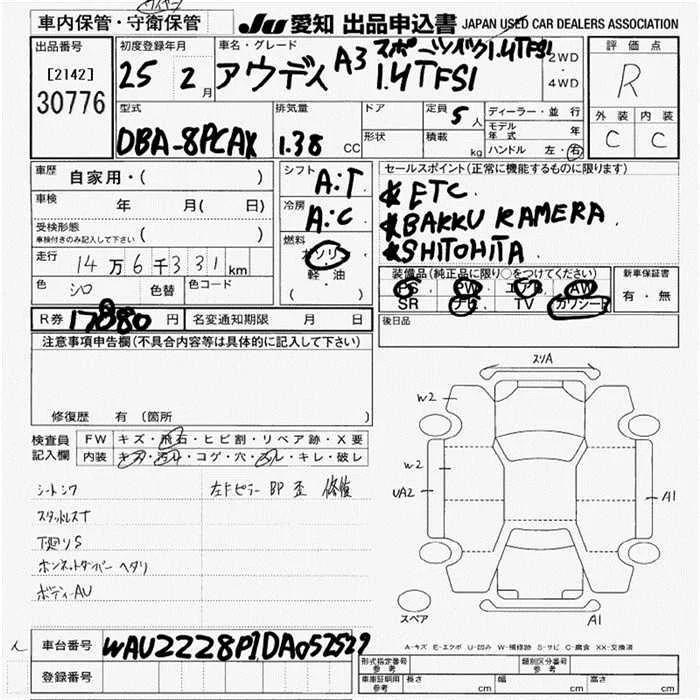 車内保管・守衛保管
JU 愛知 出品申込書 JAPAN USED CAR DEALERS ASSOCIATION
出品番号
[2142]
30776
初度登録年月
25 2月
車名・グレード
アウディ A3 スポーツバック1.4TFSI
1.4TFSI
2WD
・
4WD
評価点
R
外装 内装
C C
型式
DBA-8PCAX
排気量
1.38 CC
ドア
形状
定員 5人
積載 kg
ディーラー・並行
モデル年式 年
ハンドル 左・右
車歴 自家用・( )
車検 年 月( 日)
受検形態
車検付きのみ記入して下さい ( )
走行 14万6千331km
色 シロ 色替 色コード
シフト
A:T
冷房
A:C
燃料
ガソリン
軽・油
( )
セールスポイント(正常に機能するものに限ります)
*ETC.
*BAKKU KAMERA.
*SHITOHITA
装備品(純正品に限り○をつけてください)
PS PW エアB AW
SR ナビ TV カワシート
新車保証書
有・無
後日品
R券 17880円 名変通知期限 月 日
注意事項申告欄(不具合内容等は具体的に記入して下さい)
修復歴 有(箇所
検査員記入欄
FW キズ・飛石・ヒビ割・リペア跡・X要
内装 キズ・汚れ・コゲ・穴・スレ・キレ・破レ
左Fピラー BP 歪 修復
スタッドレスT
下廻りS
ボンネットダンパー ヘタリ
ボディーAU
スリA
W2
W2
UA2
A1
スペア
A1
A-キズ E-エクボ U-凹み W-補修跡 S-サビ C-腐食 XX-交換済
車台番号 WAUZZZ8P1DA052529
登録番号
形式指定番号 参考
類別区分番号 参考
車庫証明用 参考 長さ cm 幅 cm 高さ cm